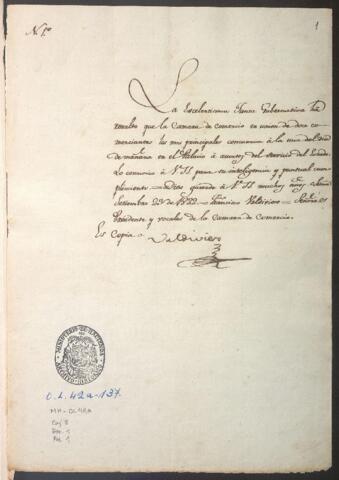 N.1º
1
La Escelentisima Junta Gubernativa há
resuelto que la Camara de comercio en union de doce co
merciantes los mas principales concurran à la una del dia
de mañana en el Palacio a asuntos del servicio del Estado.
Lo comunico à V. SS. para su inteligencia y puntual cum
plimiento = Dios guarde à V. SS. muchos años. Lima
Setiembre 23 de 1822 = Francisco Valdivieso = Señores
Presidente y vocales de la Camara de Comercio.
Es Copia =
Valdivieso
MINISTERIO DE HACIENDA
O.L. 42a-137.
MH-OL42A
Caj. 3
Doc. 1
Fol. 1